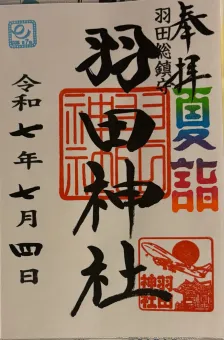 奉拝
夏詣
羽田総鎮守
羽田神社
令和七年七月四日
羽田
神社